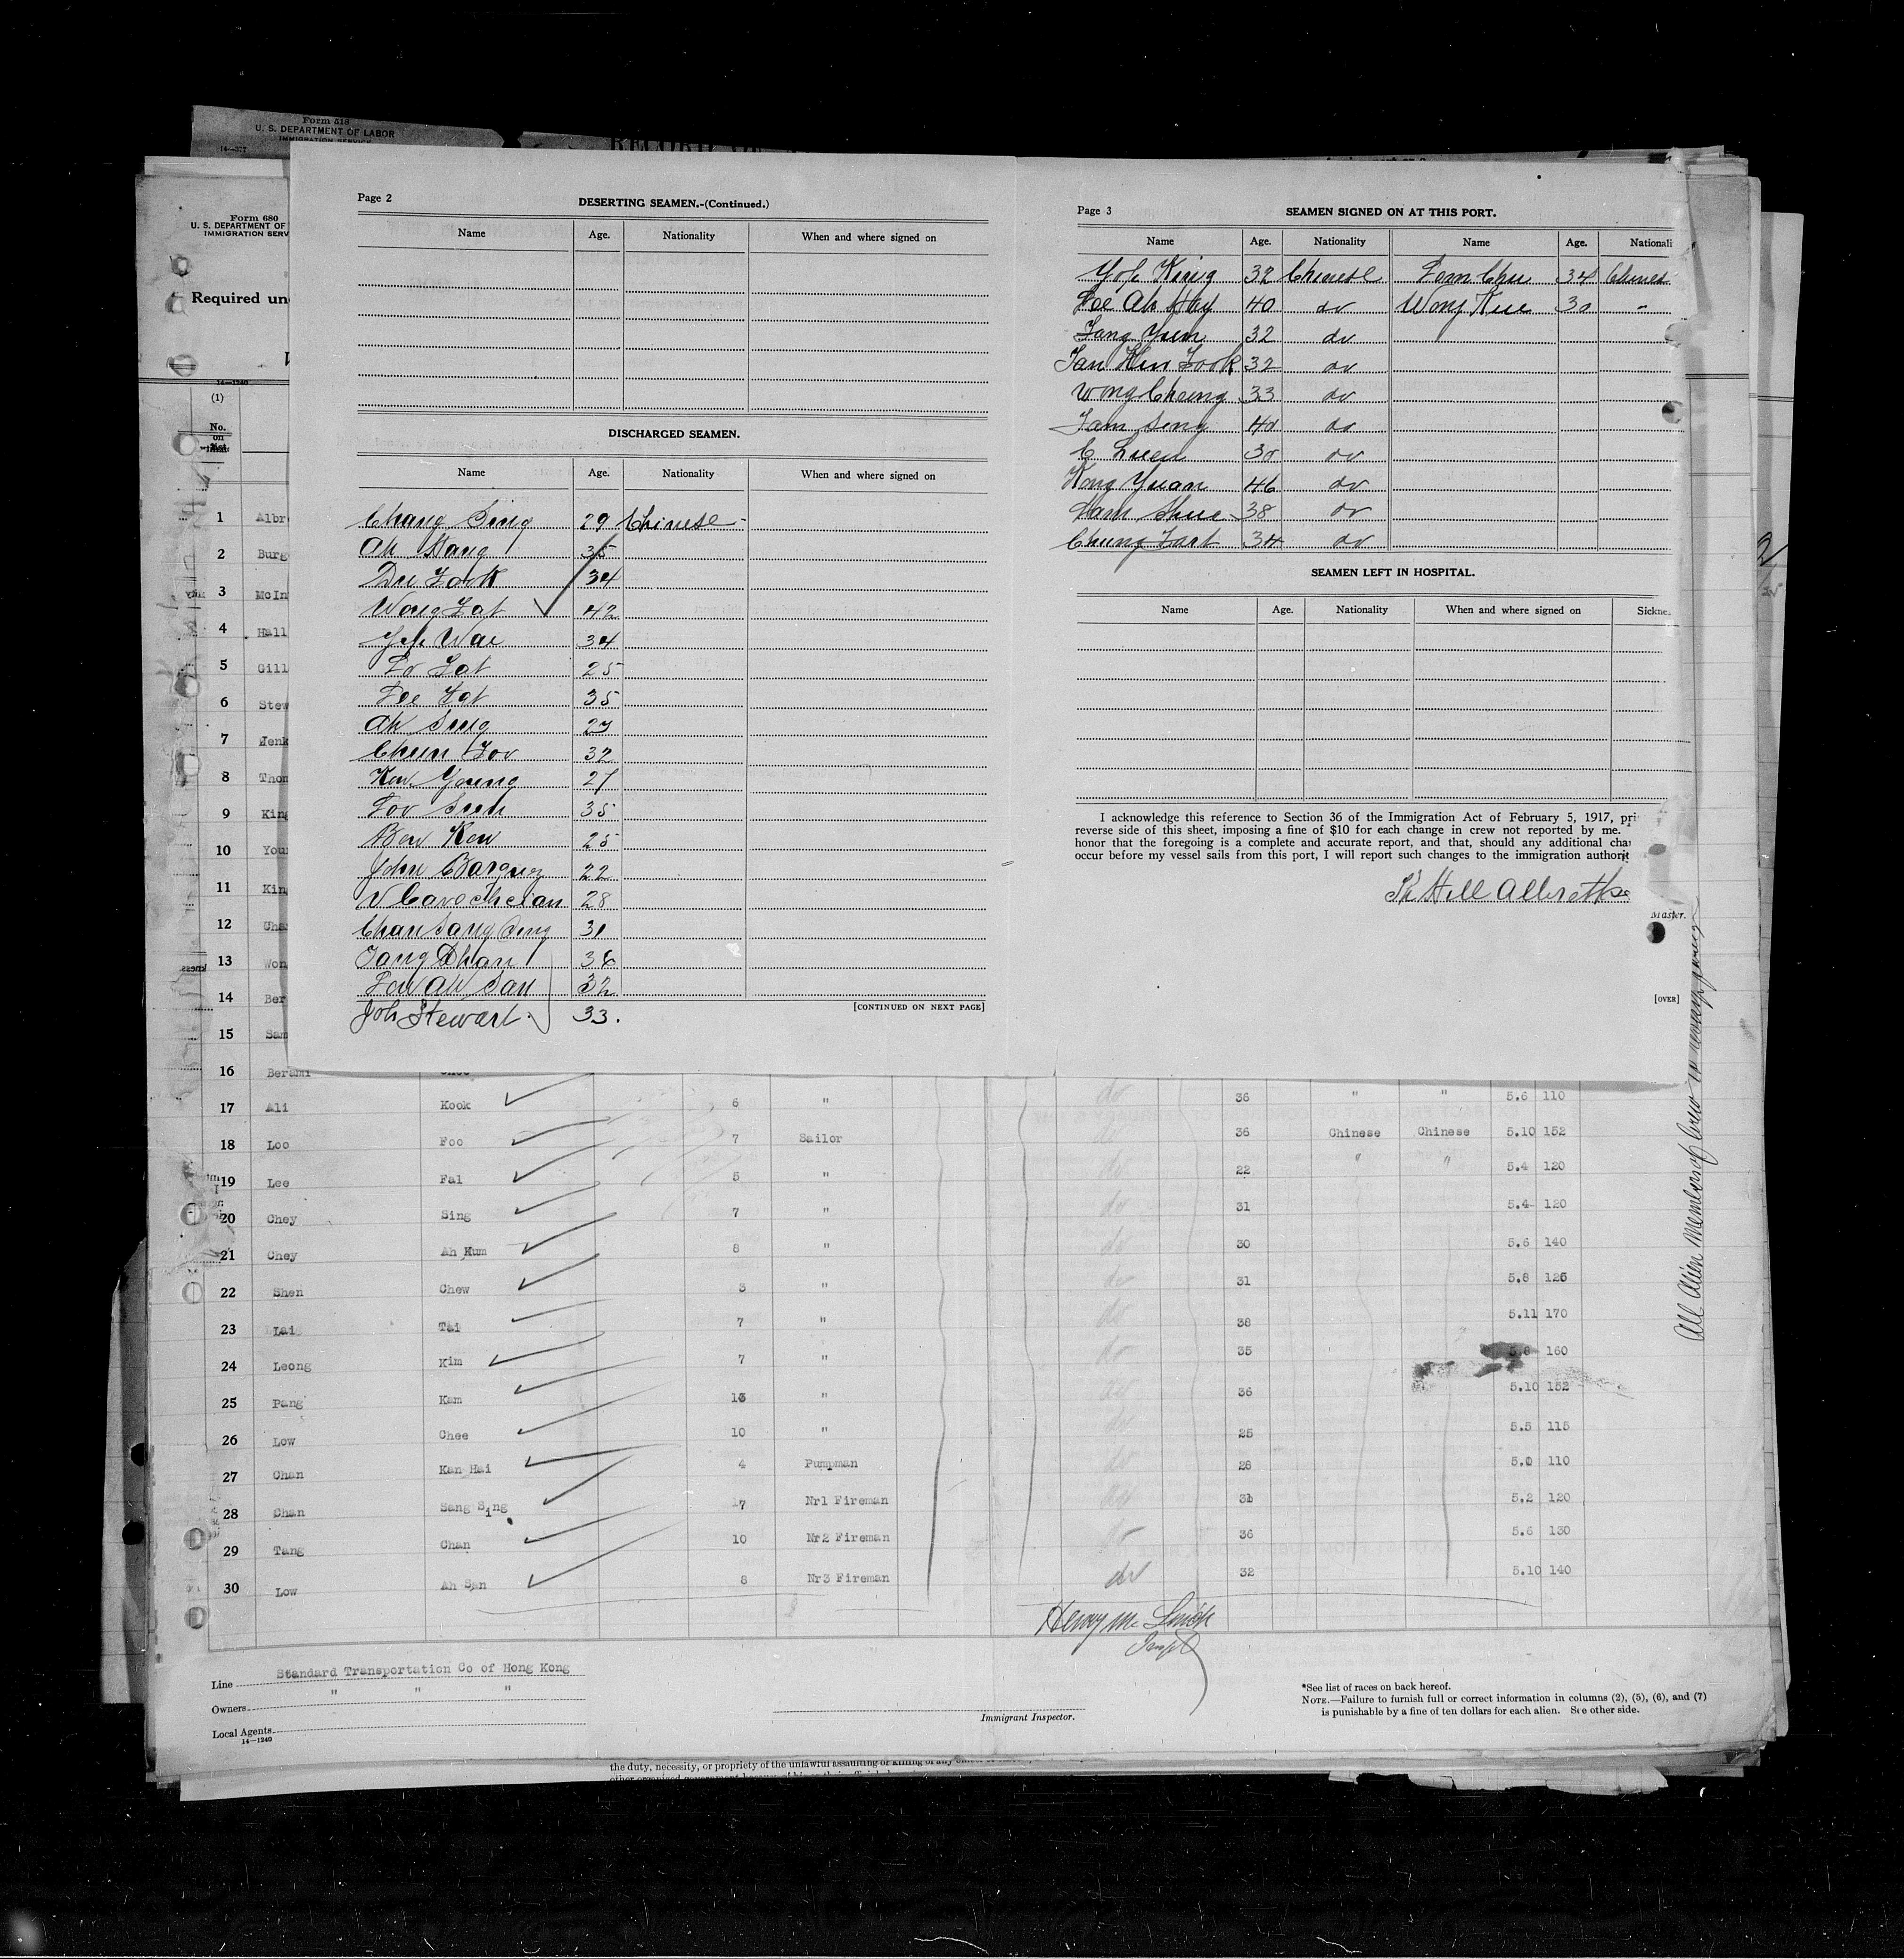 Form 518
U. S. DEPARTMENT OF LABOR
IMMIGRATION SERVICE
14—377
Form 680
U. S. DEPARTMENT OF
IMMIGRATION SERV
Required un
14—1240
(1)
No.
on
List
Page 2
DESERTING SEAMEN.-(Continued.)
Name Age. Nationality When and where signed on
DISCHARGED SEAMEN.
Name Age. Nationality When and where signed on
Chang Sing 29 Chinese
Ah Kang 35
Dee Fook 34
Wong Fat 42
Yip Wae 34
Lo Fat 25
Lee Fat 35
Ah Sing 27
Chun Foo 32
Kow Young 27
Low Sueh 35
Bow Kow 25
John Barquez 22
N 28
Chan Sang Sing 31
Tang Chan 36
Low Ah San 32
Joh Stewart 33.
[CONTINUED ON NEXT PAGE]
Page 3
SEAMEN SIGNED ON AT THIS PORT.
Name Age. Nationality Name Age. Nationali
Yop King 32 Chinese Lom Chu 34 Chines
Loe Ah Hoy 40 do Wong Kue 30 "
Fang Yuen 32 do
Tan Hen Fook 32 do
Wong Cheung 33 do
Tam Seng 40 do
C Luen 30 do
Kong Yuan 46 do
Ham Shue 38 do
Chung Fart 34 do
SEAMEN LEFT IN HOSPITAL.
Name Age. Nationality When and where signed on Sickne
I acknowledge this reference to Section 36 of the Immigration Act of February 5, 1917, pri
reverse side of this sheet, imposing a fine of $10 for each change in crew not reported by me.
honor that the foregoing is a complete and accurate report, and that, should any additional cha
occur before my vessel sails from this port, I will report such changes to the immigration authorit
Master.
[OVER]
1 Albr
2 Burg
3 McIn
4 Hall
5 Gill
6 Stew
7 Jenk
8 Thom
9 King
10 Youn
11 King
12 Chan
13 Won
14 Ber
15 Sam
16 Berami
17 Ali Kook 6 " do 36 " " 5.6 110
18 Loo Foo 7 Sailor do 36 Chinese Chinese 5.10 152
19 Lee Fal 5 " do 22 " " 5.4 120
20 Chey Sing 7 " do 31 5.4 120
21 Chey Ah Kum 8 " do 30 5.6 140
22 Shen Chew 3 " do 31 5.8 125
23 Lai Tai 7 " do 38 5.11 170
24 Leong Kim 7 " do 35 5.8 160
25 Pang Kam 13 " do 36 5.10 152
26 Low Chee 10 " do 25 5.5 115
27 Chan Kan Hai 4 Pumpman do 28 5.0 110
28 Chan Sang Sing 17 Nr1 Fireman do 31 5.2 120
29 Tang Chan 10 Nr2 Fireman do 36 5.6 130
30 Low Ah San 8 Nr3 Fireman do 32 5.10 140
Line Standard Transportation Co of Hong Kong
Owners " " "
Local Agents
14—1240
Immigrant Inspector.
*See list of races on back hereof.
NOTE.—Failure to furnish full or correct information in columns (2), (5), (6), and (7)
is punishable by a fine of ten dollars for each alien. See other side.
All Alien members of Crew
the duty, necessity, or propriety of the unlawful assaulting or killing of any